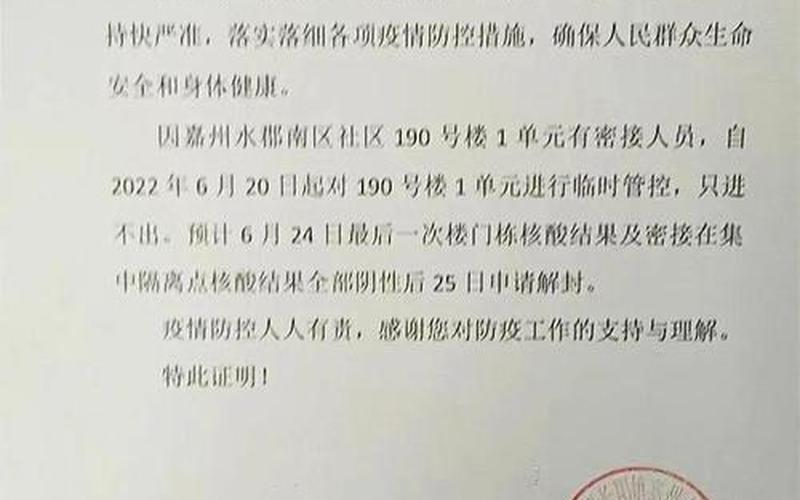 持快严准，落实落细各项疫情防控措施，确保人民群众生命
安全和身体健康。
因嘉州水郡南区社区 190 号楼 1 单元有密接人员，自
2022 年 6 月 20 日起对 190 号楼 1 单元进行临时管控，只进
不出。预计 6 月 24 日最后一次楼门栋核酸结果及密接在集
中隔离点核酸结果全部阴性后 25 日申请解封。
疫情防控人人有责，感谢您对防疫工作的支持与理解。
特此证明！